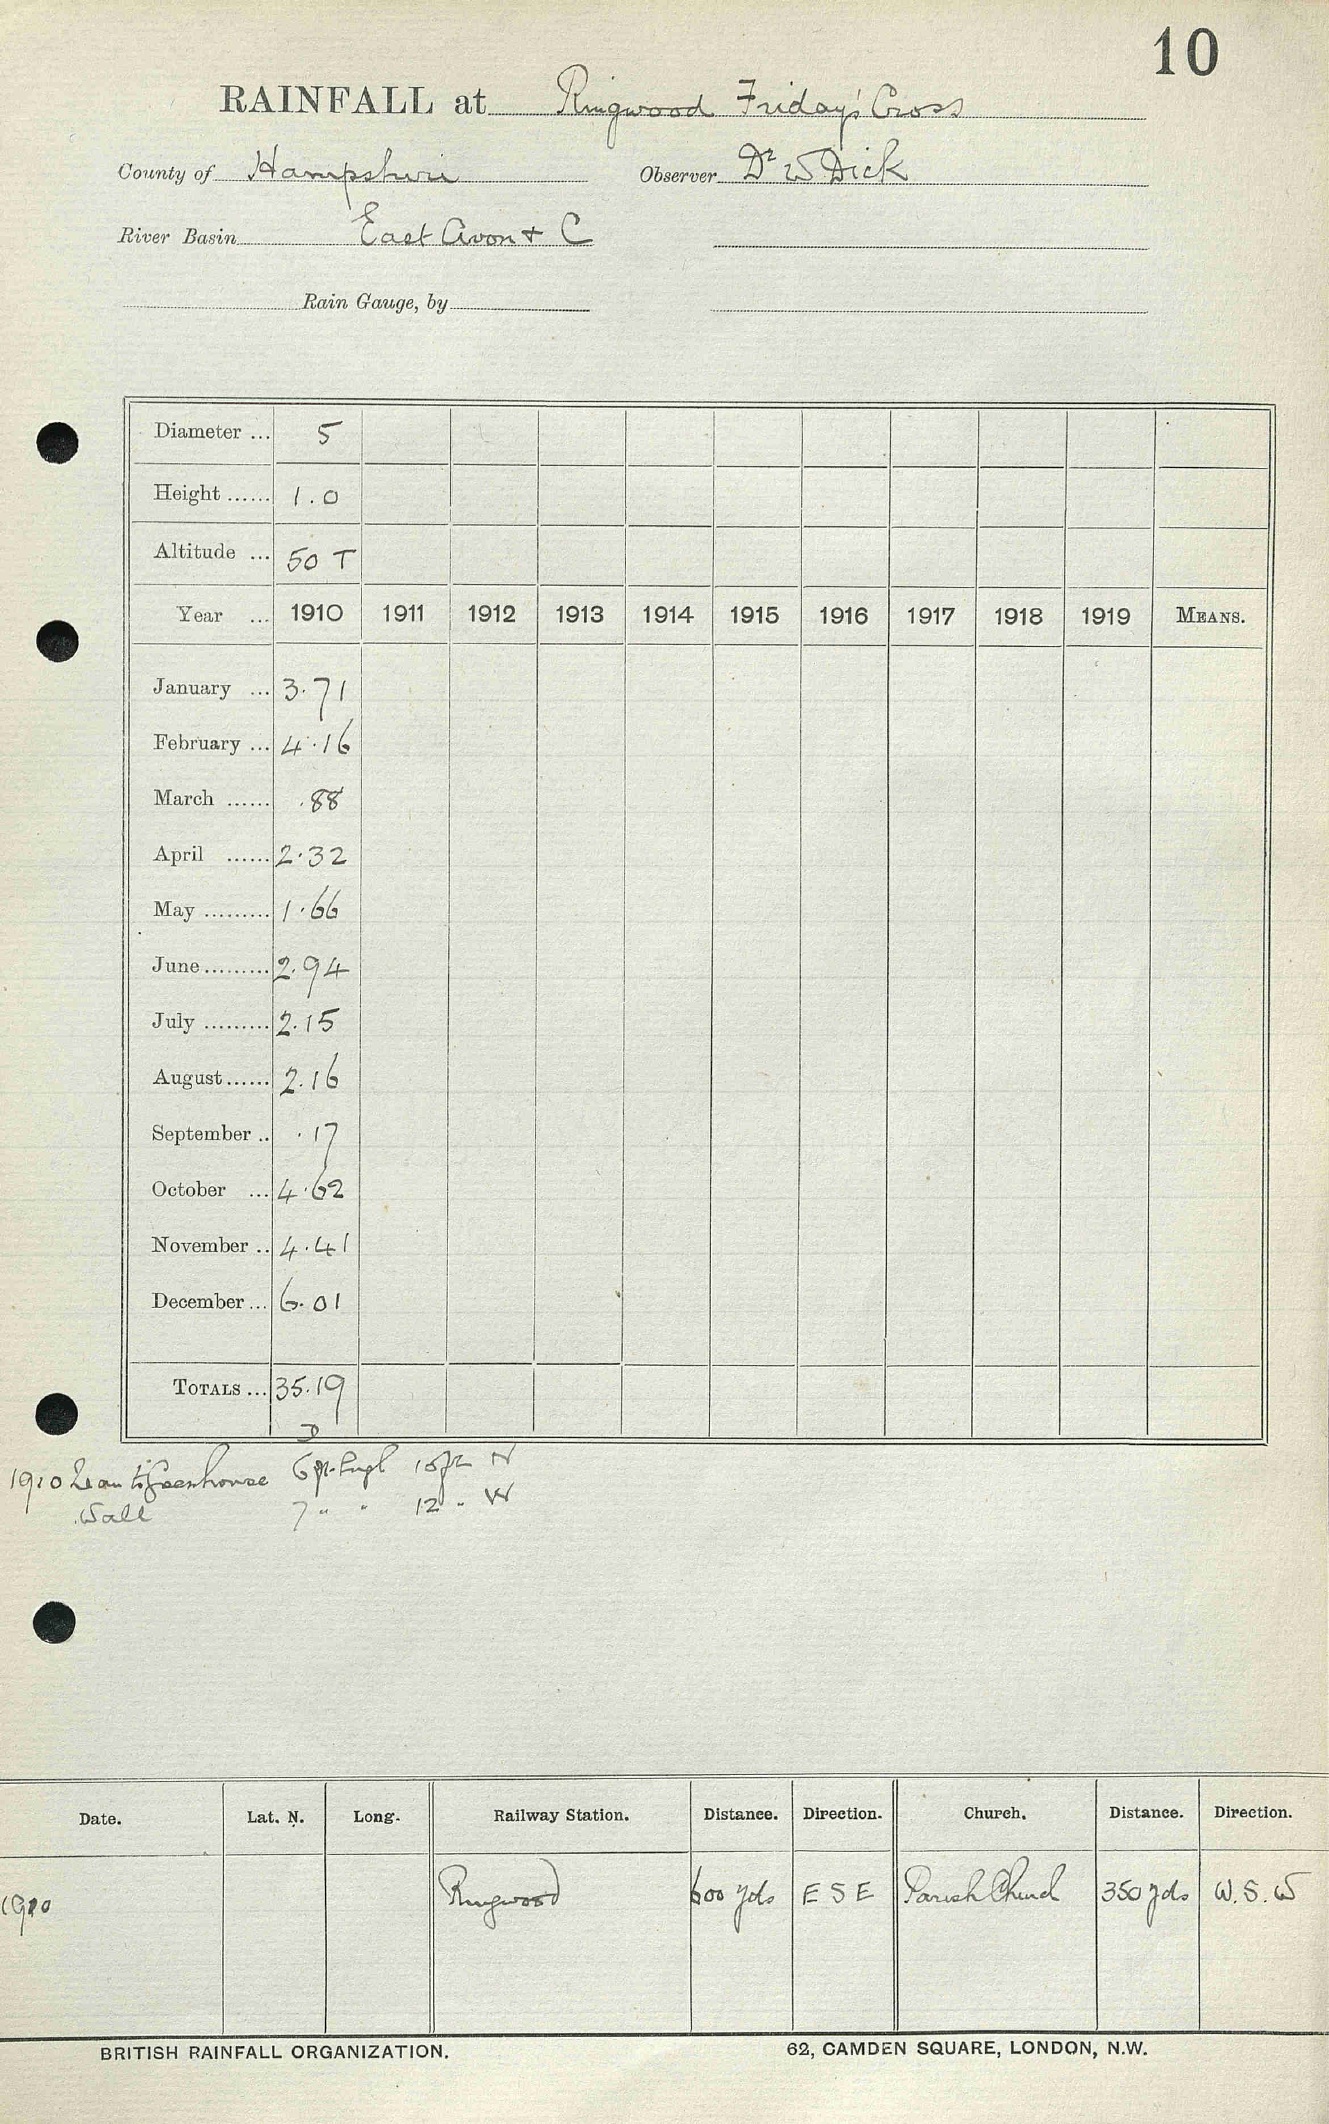 10
RAINFALL at Ringwood Friday's Cross
County of Hampshire Observer Dr W Dick
River Basin East Avon + C
Rain Gauge, by
Diameter ... 5
Height ...... 1.0
Altitude ... 50 T
Year ... 1910 1911 1912 1913 1914 1915 1916 1917 1918 1919 MEANS.
January ... 3.71
February ... 4.16
March ...... .88
April ...... 2.32
May ......... 1.66
June ......... 2.94
July ......... 2.15
August ...... 2.16
September .. .17
October ... 4.62
November .. 4.41
December ... 6.01
TOTALS ... 35.19
D
1910 Lean to Greenhouse 6 ft. high 15 ft N
Wall 7 " " 12 " W
Date. Lat. N. Long. Railway Station. Distance. Direction. Church. Distance. Direction.
1910 Ringwood 600 yds E S E Parish Church 350 yds W. S. W
BRITISH RAINFALL ORGANIZATION. 62, CAMDEN SQUARE, LONDON, N.W.